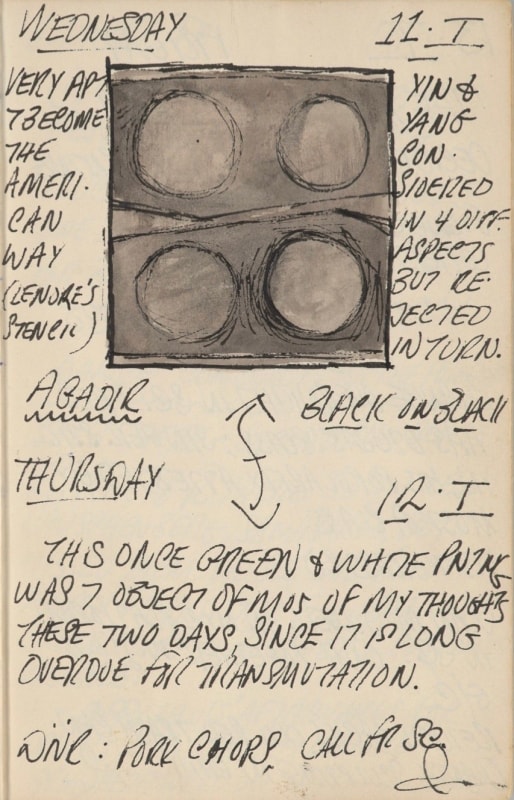 WEDNESDAY 11·I
VERY APT
7 BECOME
THE
AMERI·
CAN
WAY
(LENORE'S
STENCIL)
YIN &
YANG
CON·
SIDERED
IN 4 DIFF.
ASPECTS
BUT RE·
JECTED
IN TURN.
AGADIR BLACK ON BLACK
THURSDAY 12·I
THIS ONCE GREEN & WHITE PNTNG
WAS 7 OBJECT OF MOS OF MY THOUGHTS
THESE TWO DAYS, SINCE IT IS LONG
OVERDUE FOR TRANSMUTATION.
DINR: PORK CHOPS, CALL FR SG.